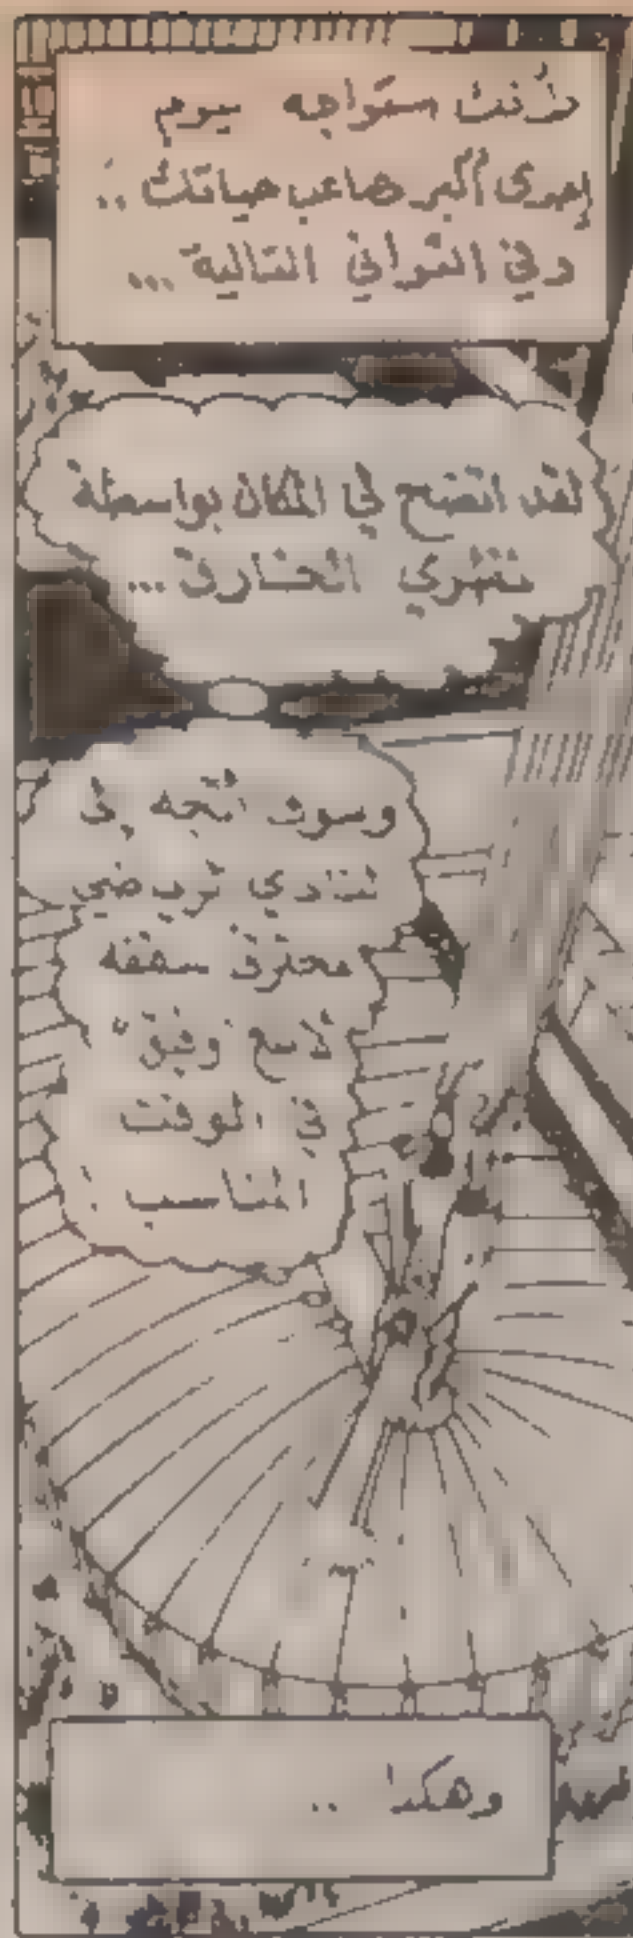 وأنت ستواجه اليوم
إحدى أكبر مصاعب حياتك ..
وفي الثواني التالية ...
لقد اتضح لي المكان بواسطة
نظري الخارق ...
وسوف أتجه إلى
النادي الرياضي
مخترقًا سقفه
لأمنع "وفيق"
في الوقت
المناسب !
وهكذا ..